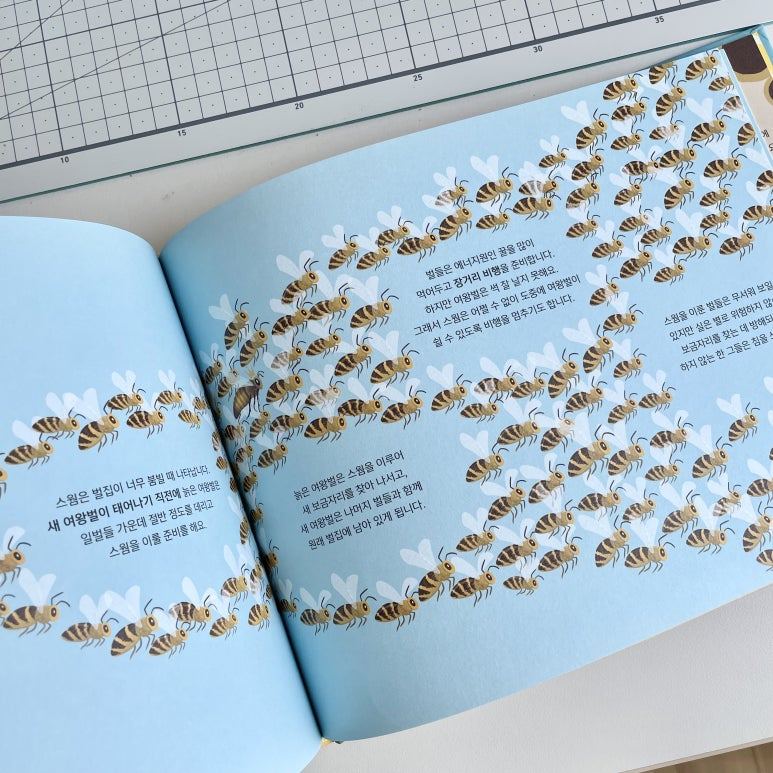 10
15
20
25
30
35
스웜은 벌집이 너무 붐빌 때 나타납니다.
새 여왕벌이 태어나기 직전에 늙은 여왕벌은
일벌들 가운데 절반 정도를 데리고
스웜을 이룰 준비를 해요.
벌들은 에너지원인 꿀을 많이
먹어두고 장거리 비행을 준비합니다.
하지만 여왕벌은 썩 잘 날지 못해요.
그래서 스웜은 어쩔 수 없이 도중에 여왕벌이
쉴 수 있도록 비행을 멈추기도 합니다.
늙은 여왕벌은 스웜을 이루어
새 보금자리를 찾아 나서고,
새 여왕벌은 나머지 벌들과 함께
원래 벌집에 남아 있게 됩니다.
스웜을 이룬 벌들은 무서워 보일
있지만 실은 별로 위험하지 않
보금자리를 찾는 데 방해
하지 않는 한 그들은 침을